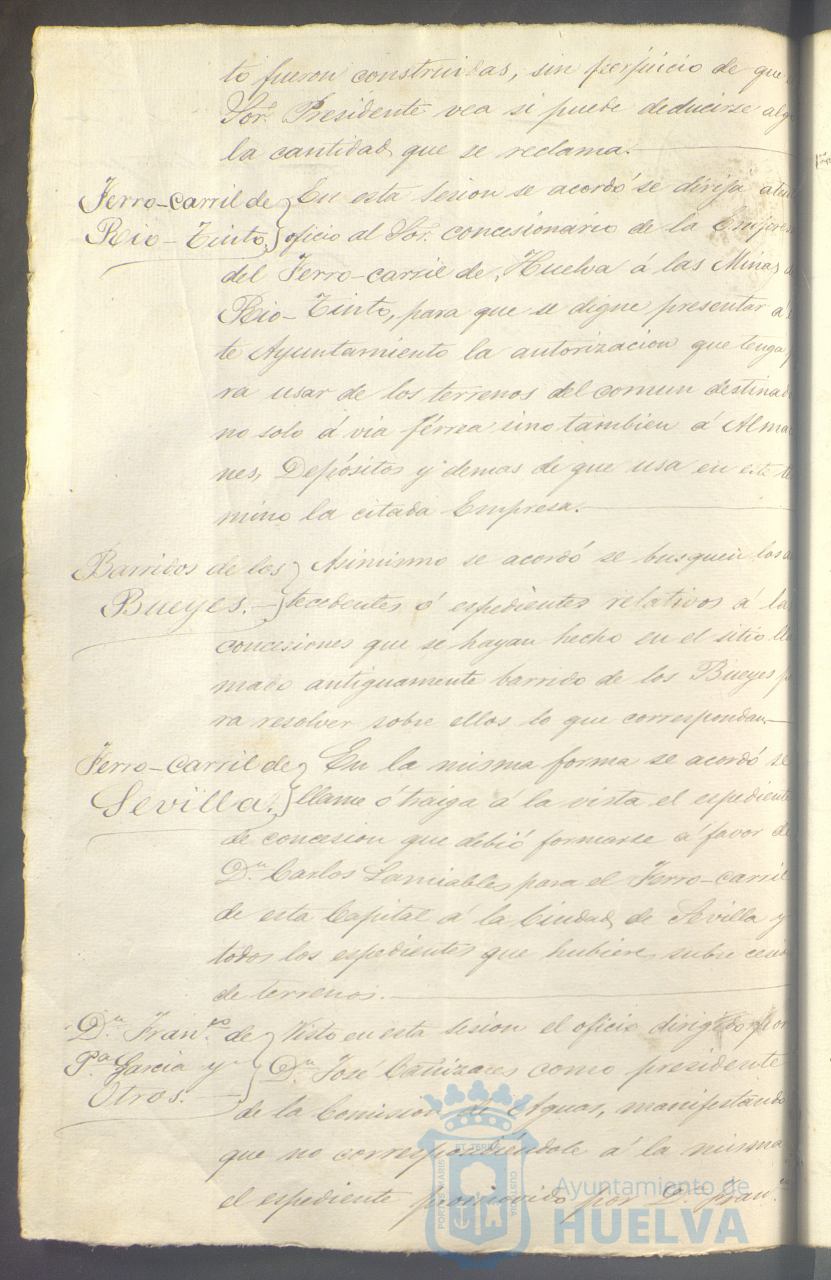 to fueron construidas, sin perjuicio de que
Sor. Presidente vea si puede deducirse alg
la cantidad que se reclama.
Ferro-carril de
Rio-Tinto.
En esta sesion se acordó se dirija
oficio al Sor. concesionario de la Empres
del Ferro-carril de Huelva á las Minas
Rio-Tinto, para que se digne presentar á
te Ayuntamiento la autorizacion que tenga
ra usar de los terrenos del comun destinad
no solo á via férrea sino tambien á Alma
nes, Depósitos y demas de que usa en este te
mino la citada Empresa.
Barridos de los
Bueyes.
Asimismo se acordó se busquen los
tecedentes ó espedientes relativos á la
concesiones que se hayan hecho en el sitio lla
mado antiguamente barrido de los Bueyes p
ra resolver sobre ellos lo que correspondan.
Ferro-carril de
Sevilla.
En la misma forma se acordó se
llame ó traiga á la vista el espediente
de concesion que debió formarse á favor de
Dn. Carlos para el Ferro-carril
de esta Capital á la Ciudad de Sevilla y
todos los espedientes que hubiere sobre cesio
de terrenos.
Dn. Franco. de
Pa. Garcia y
Otros.
Visto en esta sesion el oficio dirigido por
Dn. José Cañizares como presidente
de la Comision de Aguas, manifestando
que no correspondiéndole á la misma
el espediente promovido por Dn. Fran
PORTUS MARIS ET TERRAE CUSTODIA
Ayuntamiento de
HUELVA